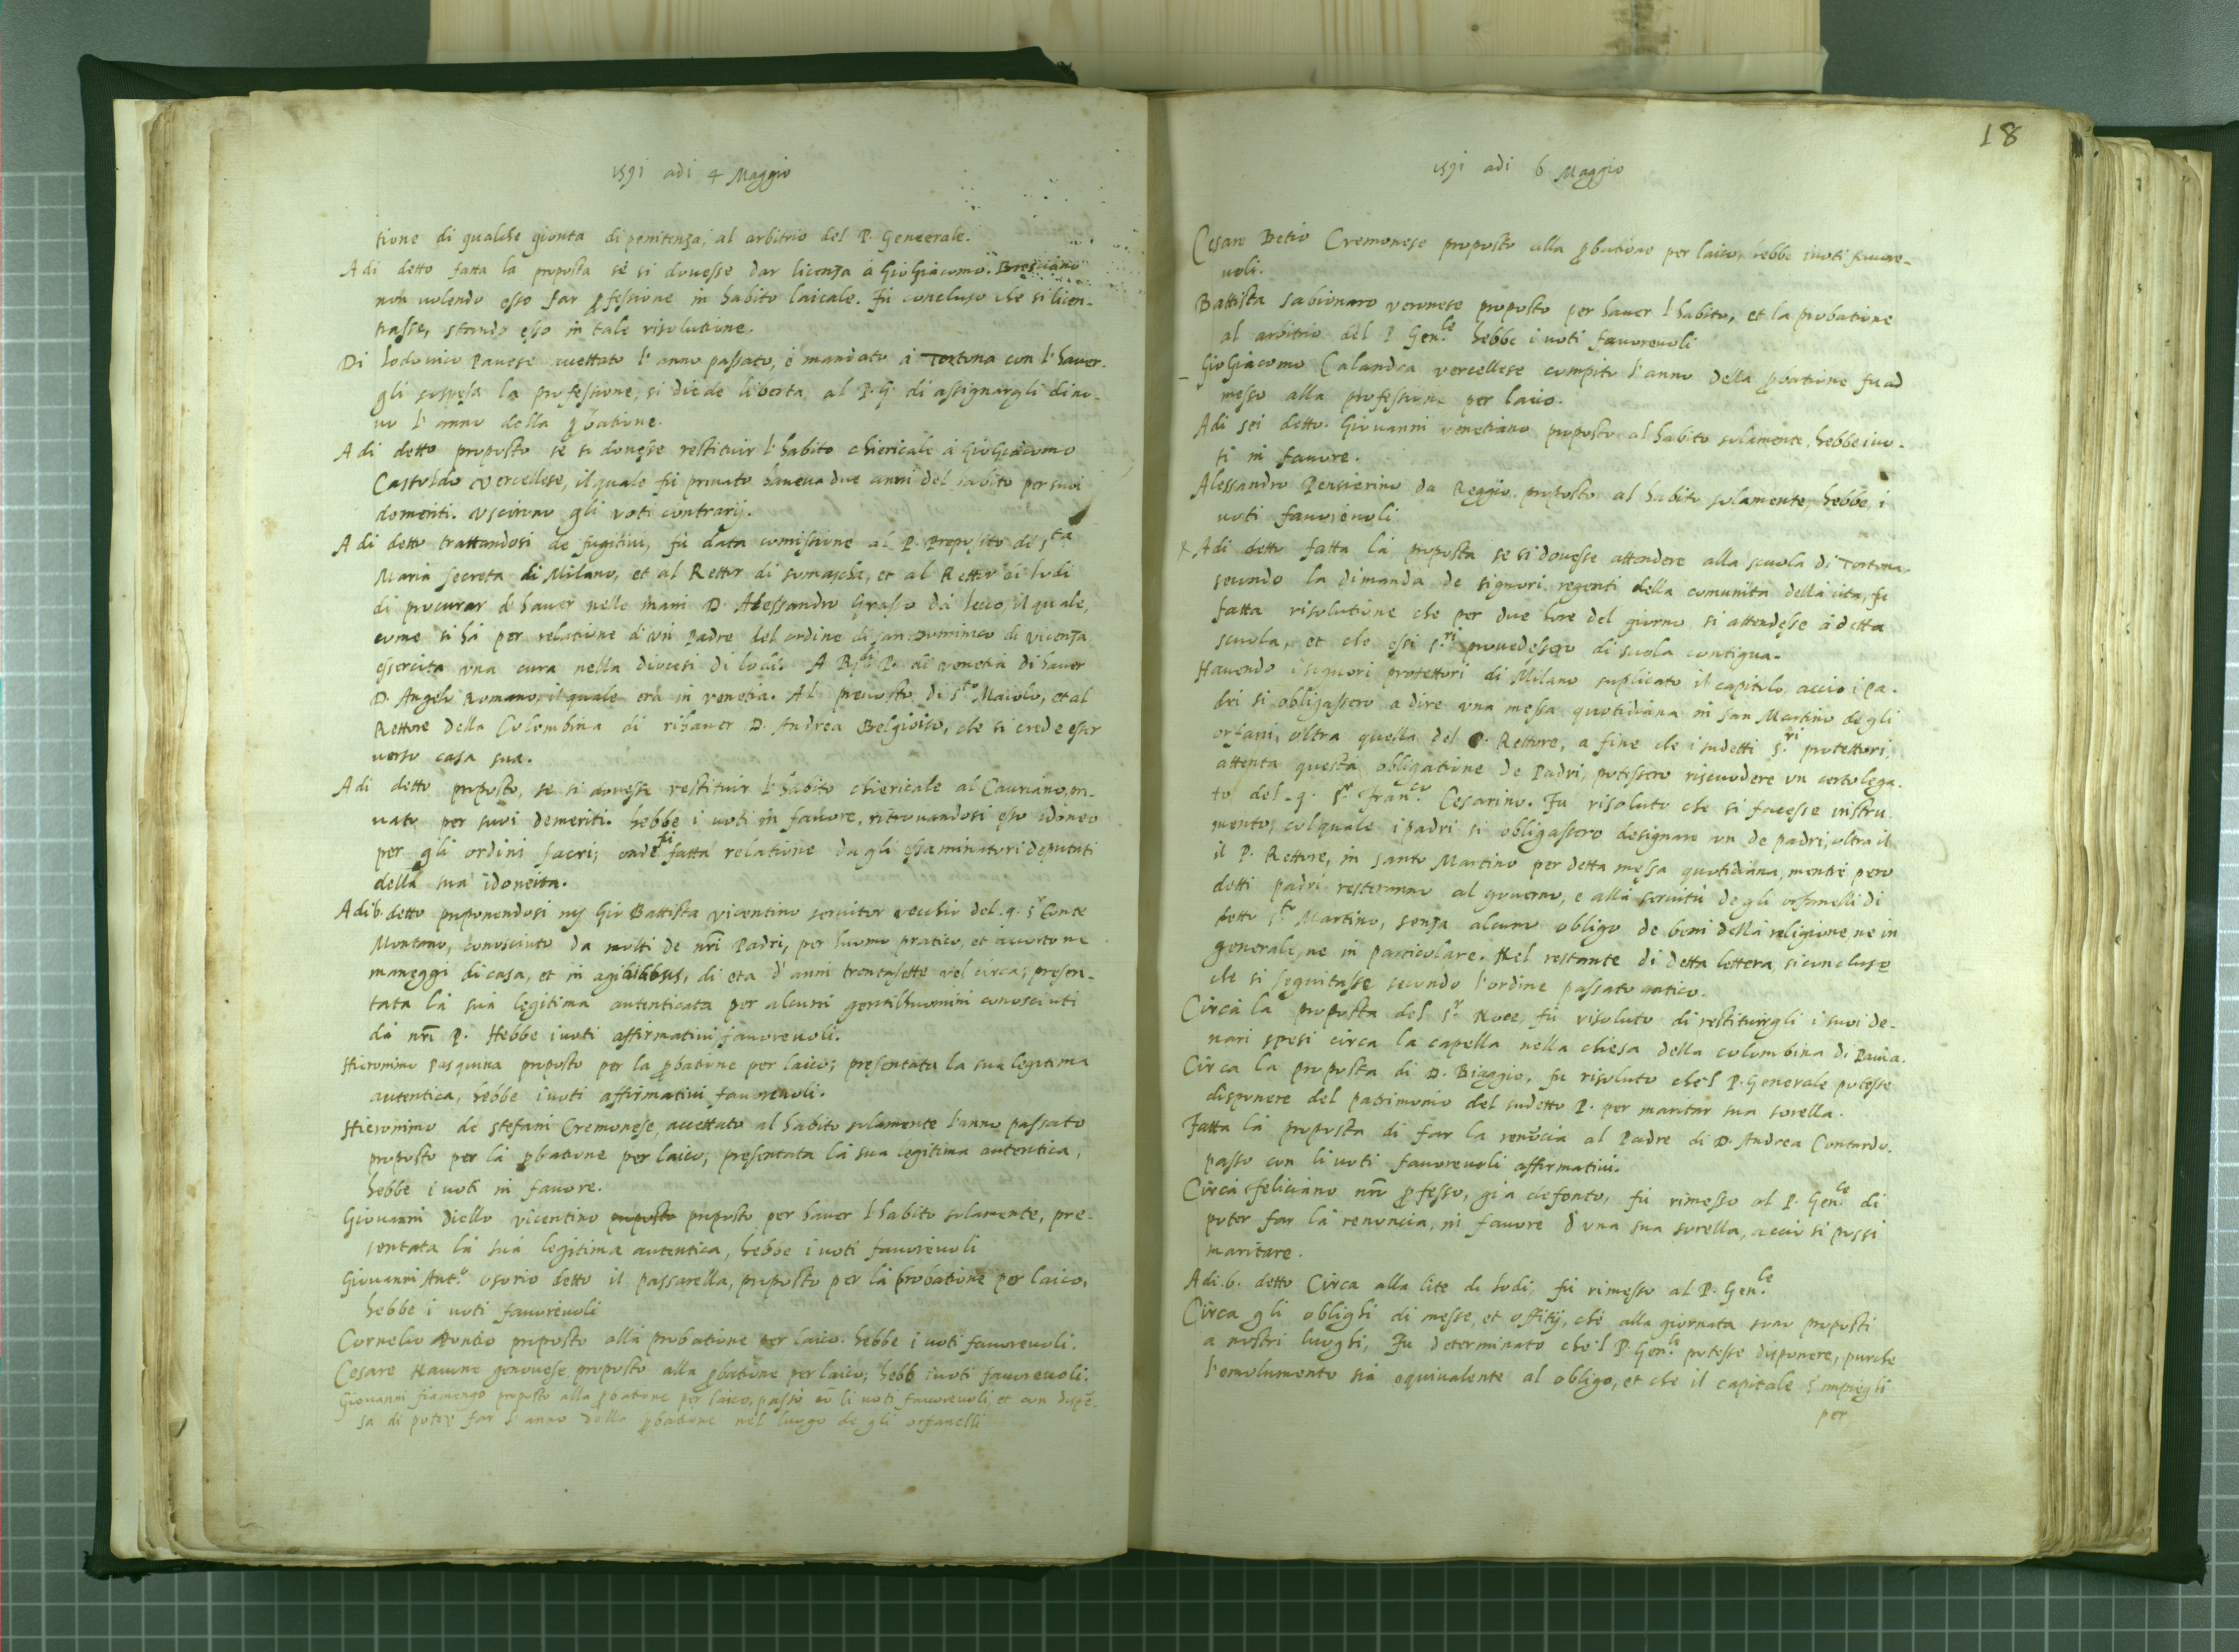 1591 adi 4 Maggio
tione di qualche gionta di penitenza, al arbitrio del P. Genèrale.
A di detto fatta la proposta sè si douesse dar licenza à GioGiacomo Bresciano
non uolendo esso far pfessione in habito laicale. Fù concluso che si licen-
tiasse, stando esso in tale risolutione.
Di Lodouico Pauese accettato l'anno passato, è mandato à Tortona con l'hauer-
gli sospesa la professione, si diede liberta al P. G. di assignargli di no-
uo l'anno della pbatione.
A di detto proposto sè si douesse restituir l'habito chiericale à GioGiacomo
Castoldo Vercellese, il quale fù priuato haueua due anni del habito per suoi
demeriti. Vscirono gli voti contrarij.
A di detto trattandosi de fugitiui, fù data comissione al P. Preposito di Sta
Maria Secreta di Milano, et al Rettor di Somascha, et al Rettor di Lodi
di procurar d'hauer nelle mani D. Alessandro Grasso da Lecco, il quale,
come si hà per relatione di vn Padre del ordine di san Dominico di Vicenza
essercita vna cura nella diocesi di Lodi. A P. di Venetia di hauer
D. Angelo Romano, il quale era in Venetia. Al preuosto di Sto Maiolo, et al
Rettore della Colombina di rihauer D. Andrea Belgioiso, che si crede esser
uerso casa sua.
A di detto proposto, se si douesse restituir l'habito chiericale al Cauriano, pri-
uato per suoi demeriti. hebbe i uoti in fauore, ritrouandosi esso idoneo
per gli ordini sacri; onde fù fatta relatione da gli essaminatori deputati
della sua idoneita.
Adi 6. detto proponendosi Gio Battista Vicentino seruitor vecchio del q. Sr Conte
Montano, conosciuto da molti de nri Padri, per huomo pratico, et accorto ne
maneggi di casa, et in agibilibus, di eta d'anni trentasette vel circa; presen-
tata la sua legitima autenticata per alcuni gentilhuomini conosciuti
da nri P. Hebbe i uoti affirmatiui fauoreuoli.
Hieronimo Pasquina proposto per la pbatione per laico; presentata la sua legitima
autentica, hebbe i uoti affirmatiui fauoreuoli.
Hieronimo de Stefani Cremonese, accettato al habito solamente l'anno passato
proposto per la pbatione per laico; presentata la sua legitima autentica,
hebbe i uoti in fauore.
Giouanni Diello vicentino proposto proposto per hauer l'habito solamente, pre-
sentata la sua legitima autentica, hebbe i uoti fauoreuoli
Giouanni Anto. Osorio detto il passarella, proposto per la probatione per laico,
hebbe i uoti fauoreuoli
Cornelio Pontio proposto alla probatione per laico. hebbe i uoti fauoreuoli.
Cesare Nauone genouese proposto alla pbatione per laico; hebb i uoti fauoreuoli.
Giouanni fiamengo proposto alla pbatione per laico, passò cō li uoti fauoreuoli, et con dispē-
sa di poter far l'anno della pbatione nel luogo de gli orfanelli
18
1591 adi 6 Maggio
Cesare Betio Cremonese proposto alla pbatione per laico, hebbe i uoti fauore-
uoli.
Battista Sabionaro veronese proposto per hauer l'habito, et la probatione
al arbitrio del P. Genle. hebbe i uoti fauoreuoli
GioGiacomo Calandra vercellese compito l'anno della pbatione fu ad
messo alla professione per laico.
Adi sei detto. Giouanni venetiano proposto al habito solamente, hebbe i uo-
ti in fauore.
Alessandro Pensierino da Reggio, proposto al habito solamente, hebbe i
uoti fauoreuoli
x Adi detto fatta la proposta se si douesse attendere alla scuola di Tortona
secondo la dimanda de signori regenti della comunità della cita, fu
fatta risolutione che per due hore del giorno si attendesse à detta
scuola, et che essi S.ri prouedessero di scola contigua.
Hauendo i signori protettori di Milano suplicato il capitolo, accio i pa-
dri si obligassero a dire vna messa quotidiana in san Martino de gli
orfani, oltra quella del P. Rettore, a fine che i sudetti S.ri protettori,
attenta questa obligatione de Padri, potessero riscuodere vn certo lega-
to del q. Sr Franco. Cesarino. Fu risoluto che si facesse instru-
mento, col quale i padri si obligassero designare vn de padri, oltra il
il P. Rettore, in santo Martino per detta messa quotidiana, mentre però
detti padri resteranno al gouerno, e alla seruitù de gli orfanelli di
detto Sto Martino, senza alcuno obligo de beni della religione, ne in
generale, ne in particolare. Nel restante di detta lettera, si concluse
che si seguitasse secondo l'ordine passato antico.
Circa la proposta del Sr. Noce, fù risoluto di restituirgli i suoi de-
nari spesi circa la capella nella chiesa della colombina di Pauia.
Circa la proposta di D. Biaggio, fu risoluto che'l P. Generale potesse
disponere del patrimonio del sudetto P. per maritar sua sorella.
Fatta la proposta di far la renūcia al Padre di D. Andrea Contardo.
passò con li uoti fauoreuoli affirmatiui.
Circa Feliciano nro pfesso, già defonto, fù rimesso al P. Genle. di
poter far la renoncia, in fauore d'una sua sorella, acciò si possi
maritare.
Adi. 6. detto Circa alla lite di Lodi, fù rimesso al P. Genle.
Circa gli oblighi di messe, et offitij, che alla giornata sono proposti
a nostri luoghi, Fù determinato che'l P. Genle. potesse disponere, purche
l'emolumento sia equiualente al obligo, et che il capitale s'impieghi
per